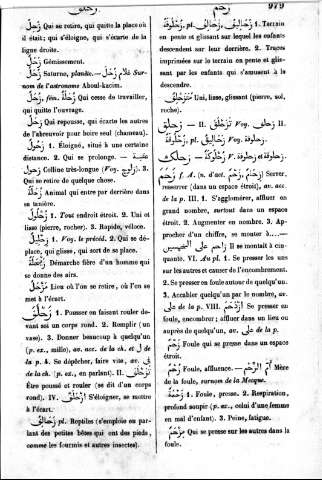 زحليق
زحم
979
زَحِلٌ Qui se retire, qui quitte la place où
il était; qui s'éloigne, qui s'écarte de la
ligne droite.
زَحِيلٌ Gémissement.
زُحَلُ Saturne, planète.— غُلَامُ زُحَلَ Sur-
nom de l'astronome Aboul-kacim.
زُحَلٌ, fém. زُحَلَةٌ Qui cesse de travailler,
qui quitte l'ouvrage.
زَحُولٌ Qui repousse, qui écarte les autres
de l'abreuvoir pour boire seul (chameau).
1. Éloigné, situé à une certaine
distance. 2. Qui se prolonge. — عقبة
Colline très-longue (Voy. زلوج). 3.
Qui se retire de quelque chose.
Animal qui entre par derrière dans
sa tanière.
1. Tout endroit étroit. 2. Uni et
lisse (pierre, rocher). 3. Rapide, véloce.
1. Voy. le précéd. 2. Qui se dé-
place, qui glisse, qui sort de sa place.
Démarche fière d'un homme qui
se donne des airs.
مَزْحَلٌ Lieu où l'on se retire, où l'on se
met à l'écart.
زَحْلَقَ 1. Pousser en faisant rouler de-
vant soi un corps rond. 2. Remplir (un
vase). 3. Donner beaucoup à quelqu'un
(p. ex., mille), av. acc. de la ch. et ل de
la p. 4. Se dépêcher, faire vite, av. في
de la ch. (p. ex., en parlant). II. تَزَحْلَقَ
Être poussé et rouler (se dit d'un corps
rond). IV. S'éloigner, se mettre
à l'écart.
زحاليق pl. Reptiles (s'emploie en par-
lant des petites bêtes qui ont des pieds,
comme les fourmis et autres insectes).
زُحْلُوقَةٌ, pl. زَحَالِقُ, زَحَالِيقُ 1. Terrain
en pente et glissant sur lequel les enfants
descendent sur leur derrière. 2. Traces
imprimées sur le terrain en pente et glis-
sant par les enfants qui s'amusent à la
descendre.
مُتَزَحْلِقٌ Uni, lisse, glissant (pierre, sol,
roche).
زحلق — II. تَزَحْلَقَ Voy. زحلف II.
زحلوقة, pl. زحاليق Voy. زحلوفة.
زحلك — زحلوكة Voy. زحلوفة et زحلوقة.
زَحَمَ f. A. (n. d'act. زَحْم, زِحَام) Serrer,
resserrer (dans un espace étroit), av. acc.
de la p. III. 1. S'agglomérer, affluer en
grand nombre, surtout dans un espace
étroit. 2. Augmenter en nombre. 3. Ap-
procher d'un chiffre, se monter à...—
زاحم على الخمسين Il se montait à cin-
quante. VI. Au pl. 1. Se presser les uns
sur les autres et causer de l'encombrement.
2. Se presser en foule autour de quelqu'un.
3. Accabler quelqu'un par le nombre, av.
على de la p. VIII. اِزْدَحَمَ Se presser en
foule, encombrer; affluer dans un lieu ou
auprès de quelqu'un, av. على de la p.
زَحْمٌ Foule qui se presse dans un espace
étroit.
زُحْمٌ Foule, affluence. — أُمُّ الزُّحْمِ Mère
de la foule, surnom de la Mecque.
زَحْمَةٌ 1. Foule, presse. 2. Respiration,
profond soupir (p. ex., celui d'une femme
en mal d'enfant). 3. Peine, fatigue.
مِزْحَمٌ Qui se presse sur les autres dans la
foule.